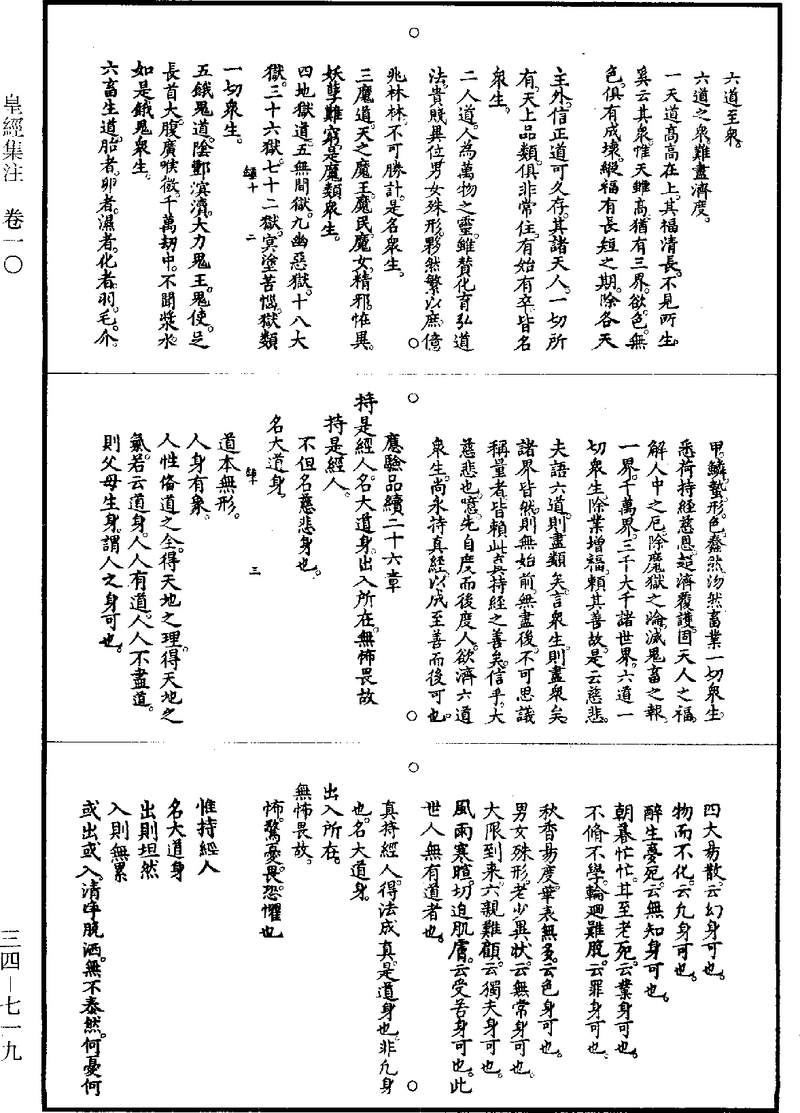 皇經集注　卷一〇
三四－七一九
六道至衆。
六道之衆、難盡濟度。
一天道高高在上。其福清長。不見所生。
奚云其衆。惟天雖高、猶有三界。欲、色、無
色。俱有成壞。縱福有長短之期。除各天
主外。信正道可久存。其諸天人。一切所
有。天上品類。俱非常住。有始有卒。皆名
衆生。
二人道。人為萬物之靈。雖賛化育弘道
法。貴賤異位、男女殊形。夥然繁以庶。億
兆林林。不可勝計。是名衆生。
三魔道。天之魔王。魔民魔女。精邪怪異。
妖孽難窮。是魔類衆生。
四地獄道。五無間獄。九幽惡獄。十八大
獄。三十六獄。七十二獄。冥塗苦惱。獄類
一切衆生。
五餓鬼道。陰酆溟濟。大力鬼王。鬼使。足
長首大。腹廣喉微。千萬劫中。不聞漿水。
如是餓鬼衆生。
六畜生道。胎者。卵者。濕者。化者。羽。毛。介。
甲。鱗。蟄。形。色。蠢然沕然。畜業一切衆生。
悉荷持經慈恩。超濟覆護。固天人之福。
解人中之厄。除魔獄之淪。滅鬼畜之報。
一界。千萬界。三千大千諸世界。六道一
切衆生。除業增福。賴其善故。是云慈悲。
夫語六道。則盡類矣。言衆生。則盡衆矣。
諸界皆然。則無始前。無盡後。不可思議
稱量者。皆賴此真持經之善矣。信乎。大
慈悲也。噫。先自度而後度人。欲濟六道
衆生。尚永持真經。以成至善而後可也。
應驗品續二十六章
持是經人。名大道身。出入所在。無怖畏故
持是經人。
不但名慈悲身也。
名大道身。
道本無形。
人身有象。
人性俻道之全。得天地之理。得天地之
氣。若云道身。人人有道。人人不盡道。
則父母生身。謂人之身可也。
四大易散。云幻身可也。
物而不化。云凡身可也。
醉生夢死。云無知身可也。
朝暮忙忙。甘至老死。云業身可也。
不脩不學。輪迴難脫。云罪身可也。
秋杳易度。華表無筭。云色身可也。
男女殊形。老少異狀。云無常身可也。
大限到來。六親難顧。云獨夫身可也。
風雨寒暄。切迫肌膚。云受苦身可也。此
世人無有道者也。
真持經人。得法成真。是道身也。非凡身
也。名大道身。
出入所在。
無怖畏故。
怖。驚憂。畏。恐懼也
惟持經人
名大道身
出則坦然
入則無累
或出或入。清淨脫洒。無不泰然。何憂何